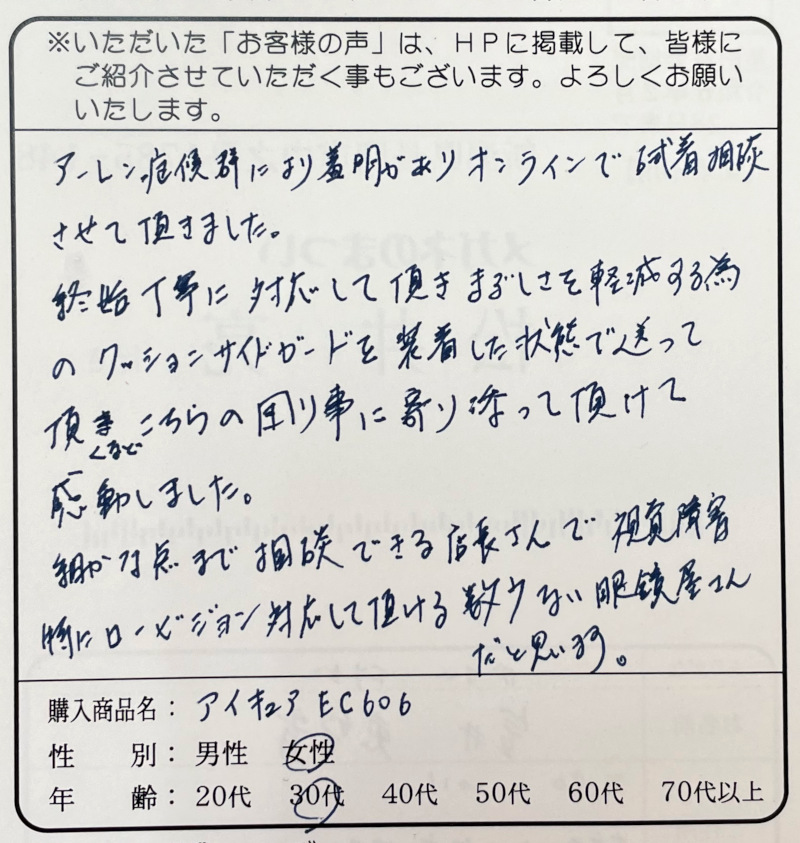 ※いただいた「お客様の声」は、HPに掲載して、皆様に
ご紹介させていただく事もございます。よろしくお願い
いたします。
アーレン症候群により羞明がありオンラインで試着相談
させて頂きました。
終始丁寧に対応して頂きまぶしさを軽減する為
のクッションサイドガードを装着した状態で送って
頂きこちらの困り事に寄り添って頂けて
くるなど
感動しました。
細かな点まで相談できる店長さんで視覚障害
特にロービジョン対応して頂ける数少ない眼鏡屋さん
だと思います。
購入商品名：アイキュア EC606
性　　別：男性　女性
年　　齢：20代　30代　40代　50代　60代　70代以上
メガネのまつい